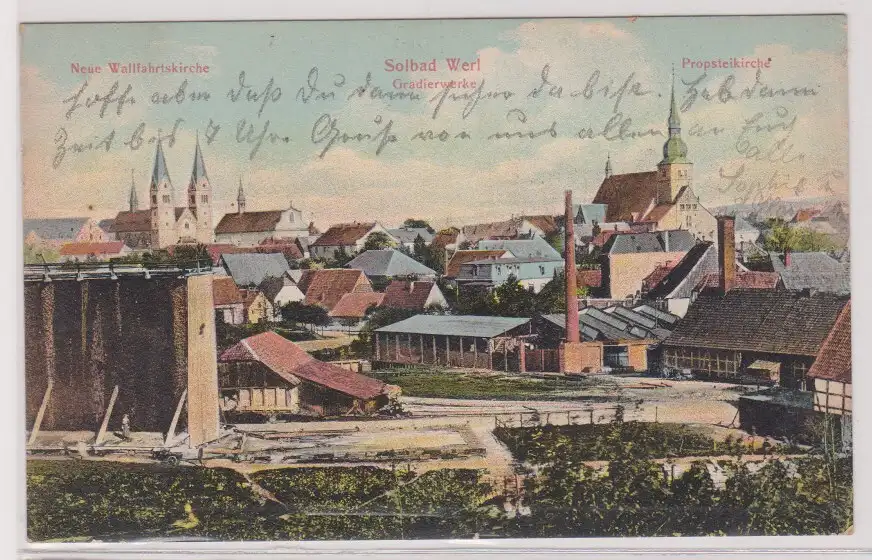 Neue Wallfahrtskirche
Solbad Werl
Gradierwerke
Propsteikirche
hoffe aber daß Du dann sicher da bist. Hab dann
Zeit bis 7 Uhr. Gruß von uns allen an Euch
Alle.
Sophie